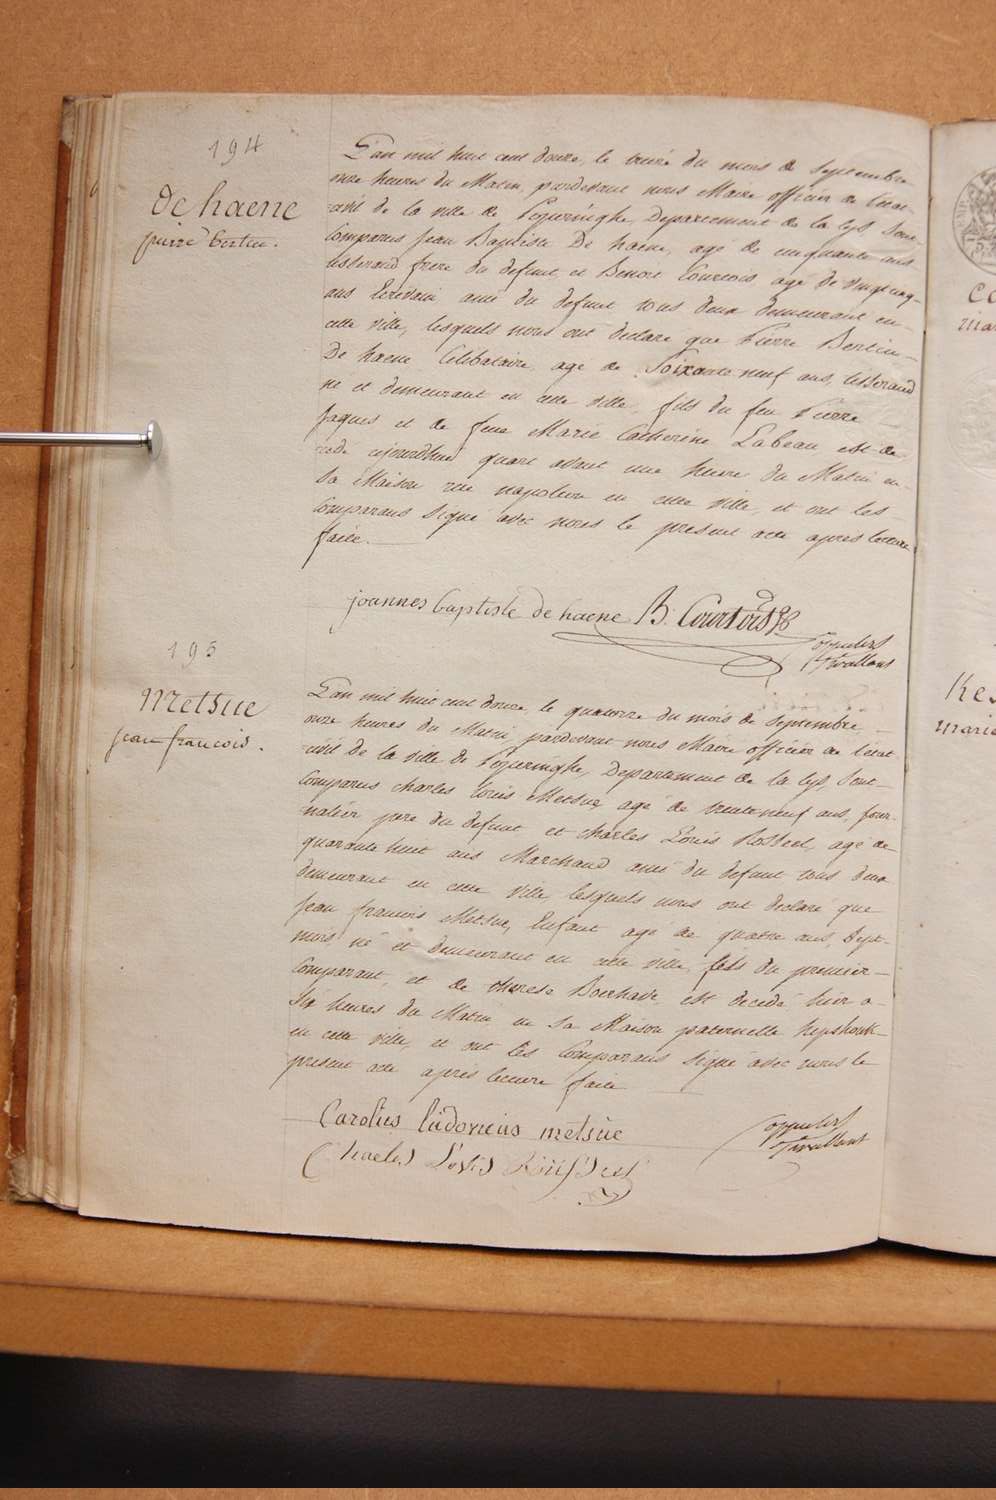 194
De haene
pierre bertin.
L'an mil huit cent douze, le treize du mois de Septembre
onze heures du Matin, pardevant nous Maire officier de l'état-
civil de la ville de Poperinghe, Departement de la Lys, Sont-
Comparus Jean Baptiste De haene, agé de cinquante ans
tisserand frere du defunt, et Benoit Courtois agé de vingt cinq-
ans Ecrivain ami du defunt tous deux demeurant en-
cette ville, lesquels nous ont declaré que Pierre Bertin-
De haene Celibataire, agé de Soixante neuf ans, tisserand
né et demeurant en cette ville, fils du feu Pierre
Jaques et de feue Marie Catherine Labeau est de
cedé aujourdhui quart avant une heure du Matin en-
Sa Maison rue napoleon en cette ville, et ont les
Comparans Signé avec nous le present acte apres lecture
faite.
joannes baptiste de haene B. Courtois
195
Metsue
jean francois.
L'an mil huit cent douze, le quatorze du mois de Septembre
onze heures du Matin, pardevant nous Maire officier de l'état-
civil de la ville de Poperinghe, Departement de la Lys, Sont-
Comparus Charles Louis Metsue agé de trente neuf ans, jour-
nalier pere du defunt et Charles Louis Rosseel, agé de
quarante huit ans Marchand ami du defunt tous deux
demeurant en cette ville, lesquels nous ont declaré que
Jean francois Metsue, Enfant agé de quatre ans, Sept-
mois né et demeurant en cette ville, fils du premier-
Comparant, et de therese Boerhave est decedé hier a-
Six heures du Matin en Sa Maison paternelle
en cette ville, et ont les Comparans Signé avec nous le
present acte apres lecture faite
Carolus ludovicus metsue
Charles Lovis